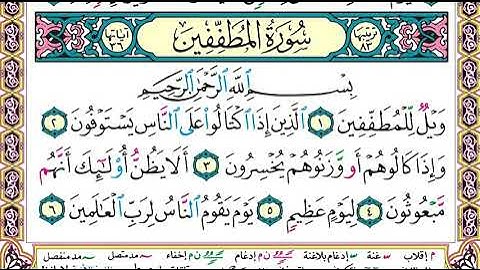 ترتيبها ٨٣ سُورَةُ المُطَفِّفِينَ آياتها ٣٦
بِسْمِ ٱللَّهِ ٱلرَّحْمَٰنِ ٱلرَّحِيمِ
وَيْلٌ لِّلْمُطَفِّفِينَ ١ ٱلَّذِينَ إِذَا ٱكْتَالُوا۟ عَلَى ٱلنَّاسِ يَسْتَوْفُونَ ٢
وَإِذَا كَالُوهُمْ أَو وَّزَنُوهُمْ يُخْسِرُونَ ٣ أَلَا يَظُنُّ أُو۟لَٰٓئِكَ أَنَّهُم
مَّبْعُوثُونَ ٤ لِيَوْمٍ عَظِيمٍ ٥ يَوْمَ يَقُومُ ٱلنَّاسُ لِرَبِّ ٱلْعَٰلَمِينَ ٦
م إقلاب ن م إدغام ن م إخفاء مد متصل مد منفصل